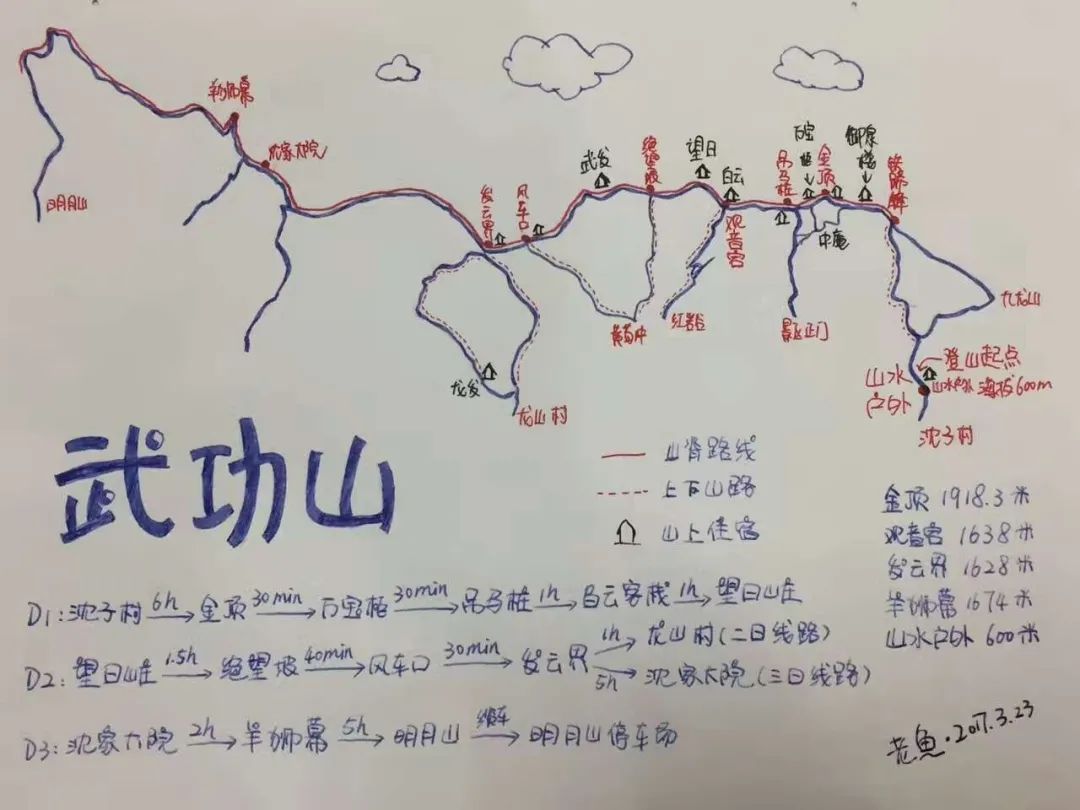 羊狮幕
沈家大院
明月山
发云界
风车口
武发
绝望坡
望日
白云
观音宫
吊马桩
万宝柜
金顶
中庵
铁蹄峰
九龙山
黄茅冲
红岩谷
景区正门
龙发
龙山村
登山起点
山水户外 海拔600m
山水户外
沈子村
武功山
山脊路线
上下山路
山上住宿
金顶 1918.3米
观音宫 1638米
发云界 1628米
羊狮幕 1674米
山水户外 600米
D1:沈子村 6h 金顶 30min 万宝柜 30min 吊马桩 1h 白云客栈 1h 望日山庄
D2:望日山庄 1.5h 绝望坡 40min 风车口 30min 发云界 1h 龙山村(二日线路)
5h 沈家大院(三日线路)
D3:沈家大院 2h 羊狮幕 5h 明月山 缆车 明月山停车场
老鱼·2017.3.23